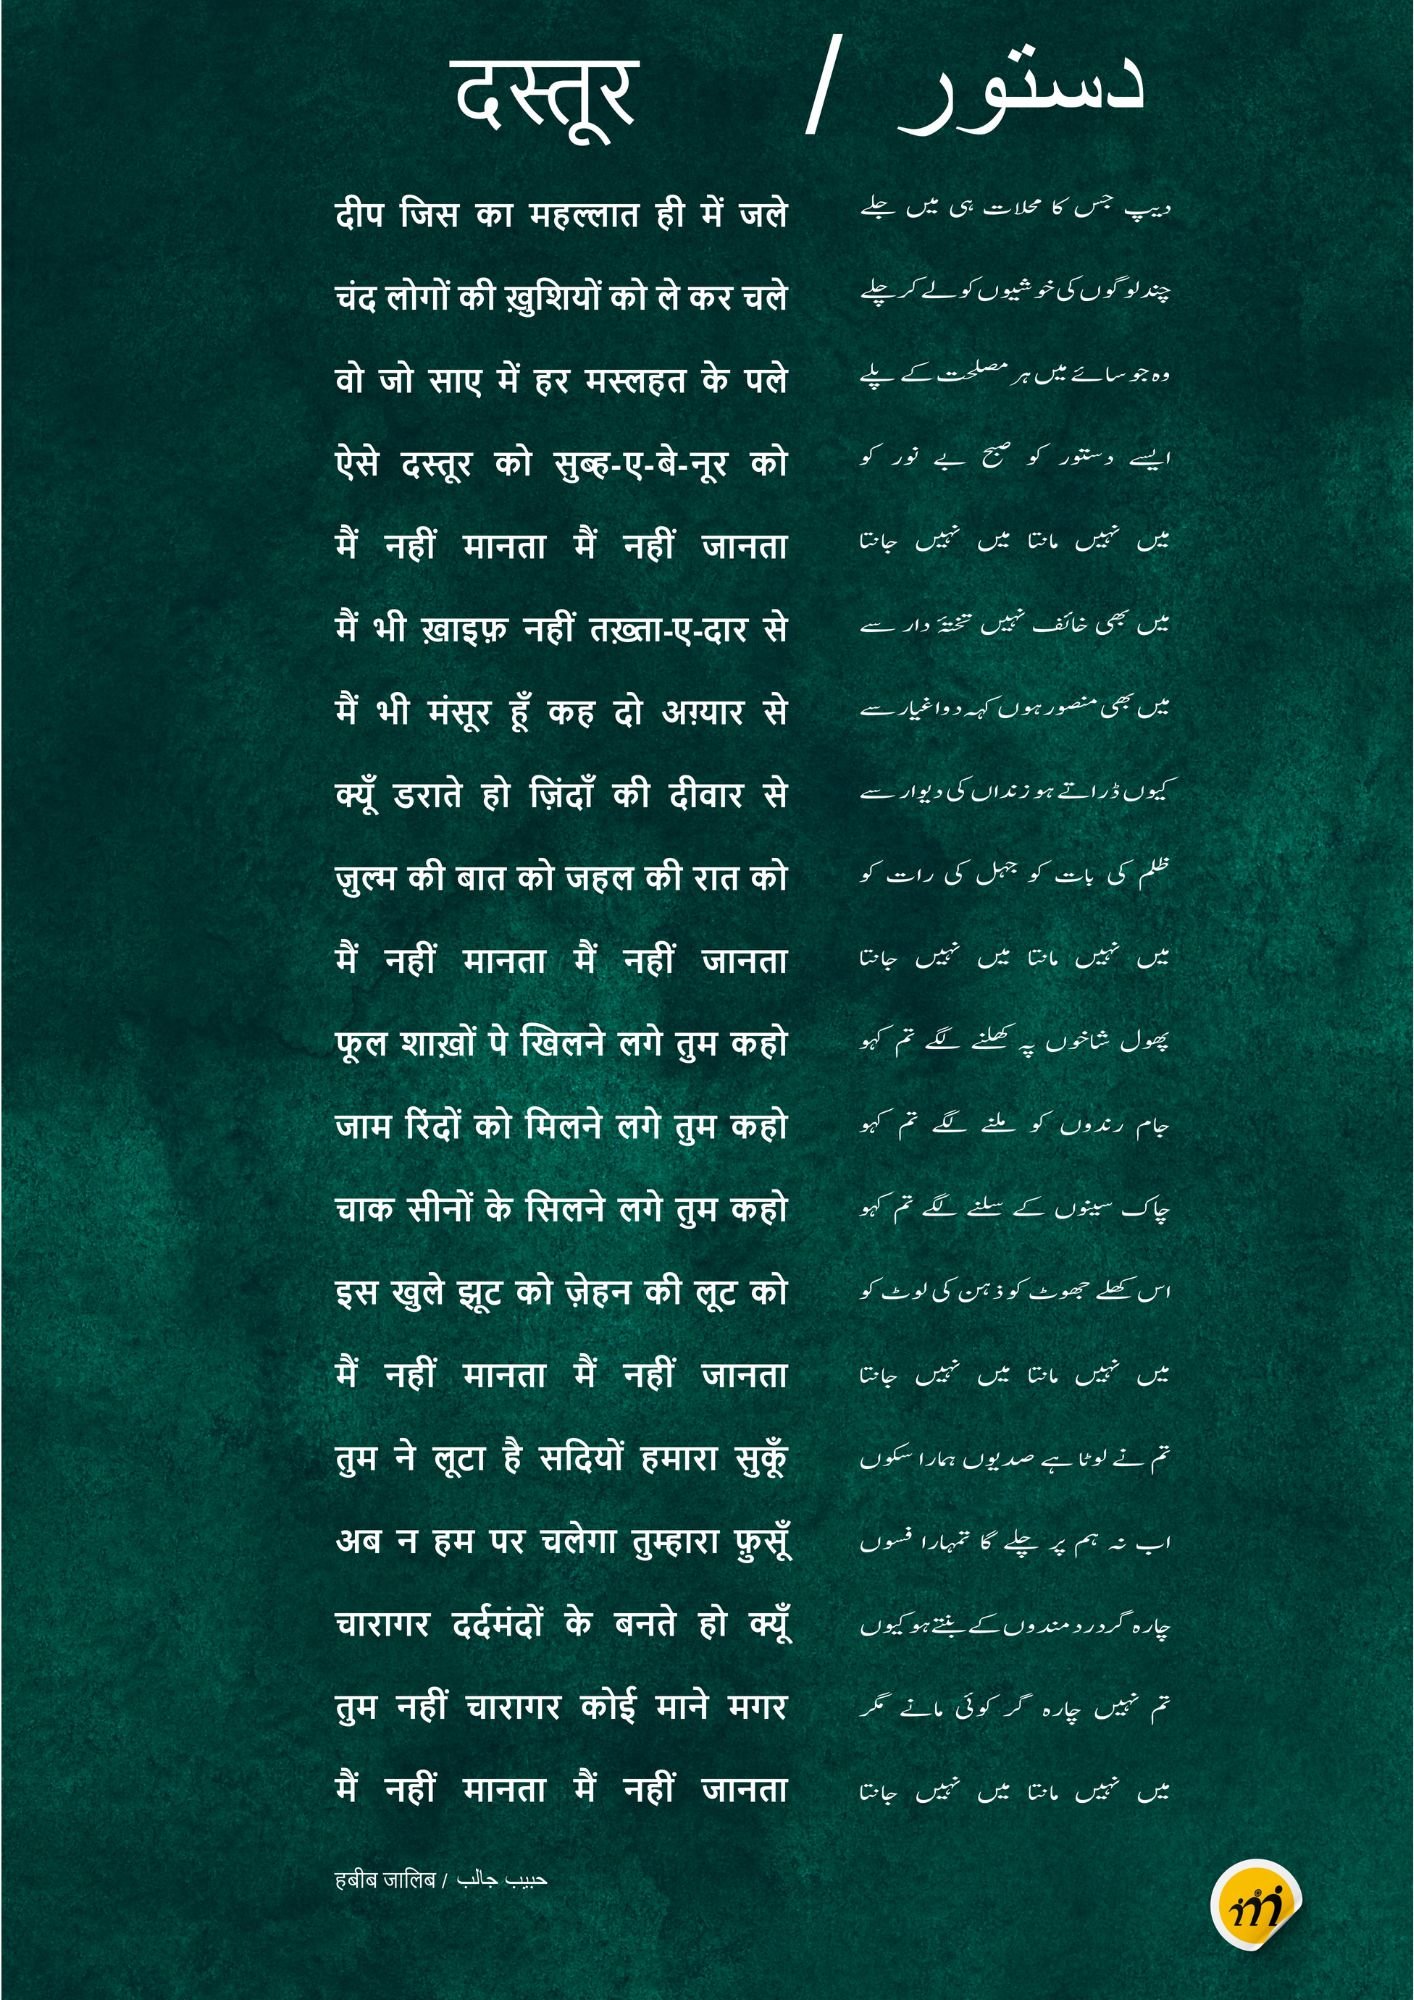 दस्तूर / دستور
दीप जिस का महल्लात ही में जले
चंद लोगों की ख़ुशियों को ले कर चले
वो जो साए में हर मस्लहत के पले
ऐसे दस्तूर को सुब्ह-ए-बे-नूर को
मैं नहीं मानता मैं नहीं जानता
मैं भी ख़ाइफ़ नहीं तख़्ता-ए-दार से
मैं भी मंसूर हूँ कह दो अग़्यार से
क्यूँ डराते हो ज़िंदाँ की दीवार से
ज़ुल्म की बात को जहल की रात को
मैं नहीं मानता मैं नहीं जानता
फूल शाख़ों पे खिलने लगे तुम कहो
जाम रिंदों को मिलने लगे तुम कहो
चाक सीनों के सिलने लगे तुम कहो
इस खुले झूट को ज़ेहन की लूट को
मैं नहीं मानता मैं नहीं जानता
तुम ने लूटा है सदियों हमारा सुकूँ
अब न हम पर चलेगा तुम्हारा फ़ुसूँ
चारागर दर्दमंदों के बनते हो क्यूँ
तुम नहीं चारागर कोई माने मगर
मैं नहीं मानता मैं नहीं जानता
دیپ جس کا محلات ہی میں جلے
چند لوگوں کی خوشیوں کو لے کر چلے
وہ جو سائے میں ہر مصلحت کے پلے
ایسے دستور کو صبح بے نور کو
میں نہیں مانتا میں نہیں جانتا
میں بھی خائف نہیں تختۂ دار سے
میں بھی منصور ہوں کہہ دو اغیار سے
کیوں ڈراتے ہو زنداں کی دیوار سے
ظلم کی بات کو جہل کی رات کو
میں نہیں مانتا میں نہیں جانتا
پھول شاخوں پہ کھلنے لگے تم کہو
جام رندوں کو ملنے لگے تم کہو
چاک سینوں کے سلنے لگے تم کہو
اس کھلے جھوٹ کو ذہن کی لوٹ کو
میں نہیں مانتا میں نہیں جانتا
تم نے لوٹا ہے صدیوں ہمارا سکوں
اب نہ ہم پر چلے گا تمہارا فسوں
چارہ گر درد مندوں کے بنتے ہو کیوں
تم نہیں چارہ گر کوئی مانے مگر
میں نہیں مانتا میں نہیں جانتا
हबीब जालिब / حبیب جالب